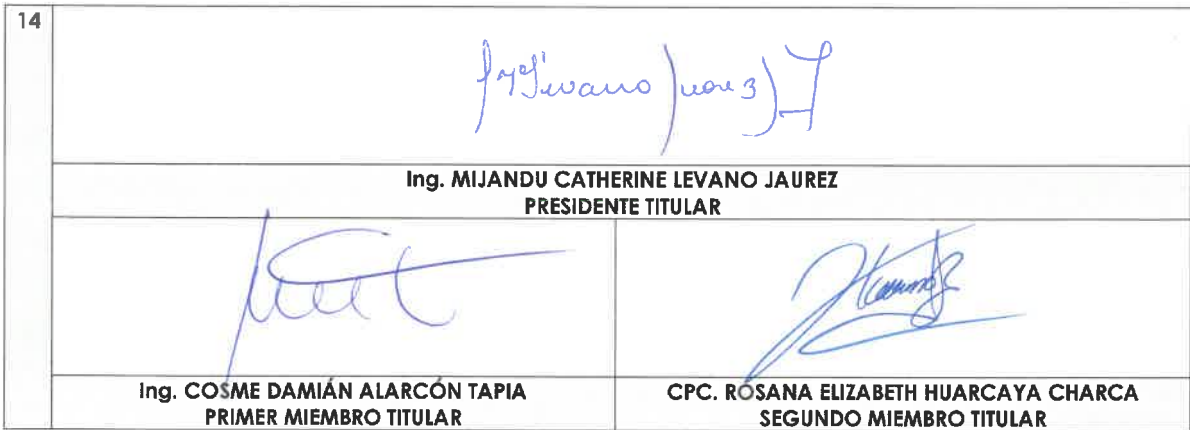 14
Ing. MIJANDU CATHERINE LEVANO JAUREZ
PRESIDENTE TITULAR
Ing. COSME DAMIÁN ALARCÓN TAPIA
PRIMER MIEMBRO TITULAR
CPC. ROSANA ELIZABETH HUARCAYA CHARCA
SEGUNDO MIEMBRO TITULAR